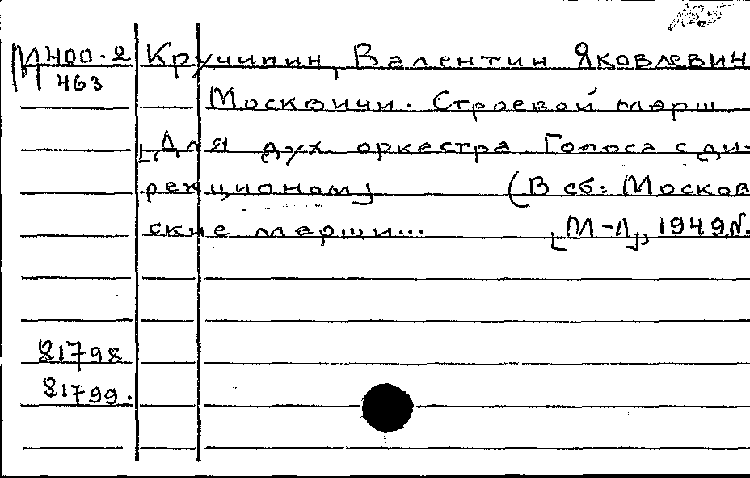 М 400-2 Кручинин, Валентин Яковлевич
463
Москвичи. Строевой марш
[Для дух. оркестра. Голоса с ди-
рекционом] (В сб: Москов
ские марши... [М-Л], 1949 г.
81798
81799.